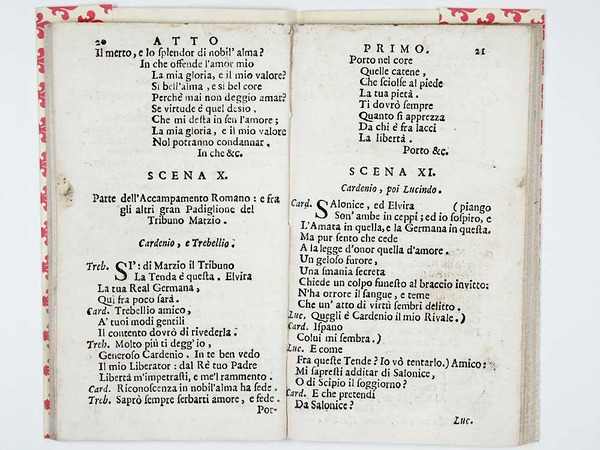 20 ATTO
Il merto, e lo splendor di nobil' alma?
In che offende l'amor mio
La mia gloria, e il mio valore?
Si bell'alma, e si bel core
Perchè mai non deggio amar?
Se virtude è quel desio,
Che mi desta in sen l'amore;
La mia gloria, e il mio valore
Nol potranno condannar.
In che &c.
SCENA X.
Parte dell'Accampamento Romano: e fra
gli altri gran Padiglione del
Tribuno Marzio.
Cardenio, e Trebellio.
Treb. SI': di Marzio il Tribuno
La Tenda è questa. Elvira
La tua Real Germana,
Qui fra poco sarà.
Card. Trebellio amico,
A' tuoi modi gentili
Il contento dovrò di rivederla.
Treb. Molto più ti degg'io,
Generoso Cardenio. In te ben vedo
Il mio Liberator: dal Rè tuo Padre
Libertà m'impetrasti, e me'l rammento.
Card. Riconoscenza in nobil'alma ha sede.
Treb. Saprò sempre serbarti amore, e fede.
Por-
PRIMO. 21
Porto nel core
Quelle catene,
Che sciolse al piede
La tua pietà.
Ti dovrò sempre
Quanto si apprezza
Da chi è fra lacci
La libertà.
Porto &c.
SCENA XI.
Cardenio, poi Lucindo.
Card. SAlonice, ed Elvira (piango
Son' ambe in ceppi; ed io sospiro, e
L'Amata in quella, e la Germana in questa.
Ma pur sento che cede
A la legge d'onor quella d'amore.
Un geloso furore,
Una smania secreta
Chiede un colpo funesto al braccio invitto:
N'ha orrore il sangue, e teme
Che un' atto di virtù sembri delitto.
Luc. Quegli è Cardenio il mio Rivale.)
Card. Ispano
Colui mi sembra.)
Luc. E come
Fra queste Tende? Io vò tentarlo.) Amico:
Mi sapresti additar di Salonice,
O di Scipio il soggiorno?
Card. E che pretendi
Da Salonice?
Luc.